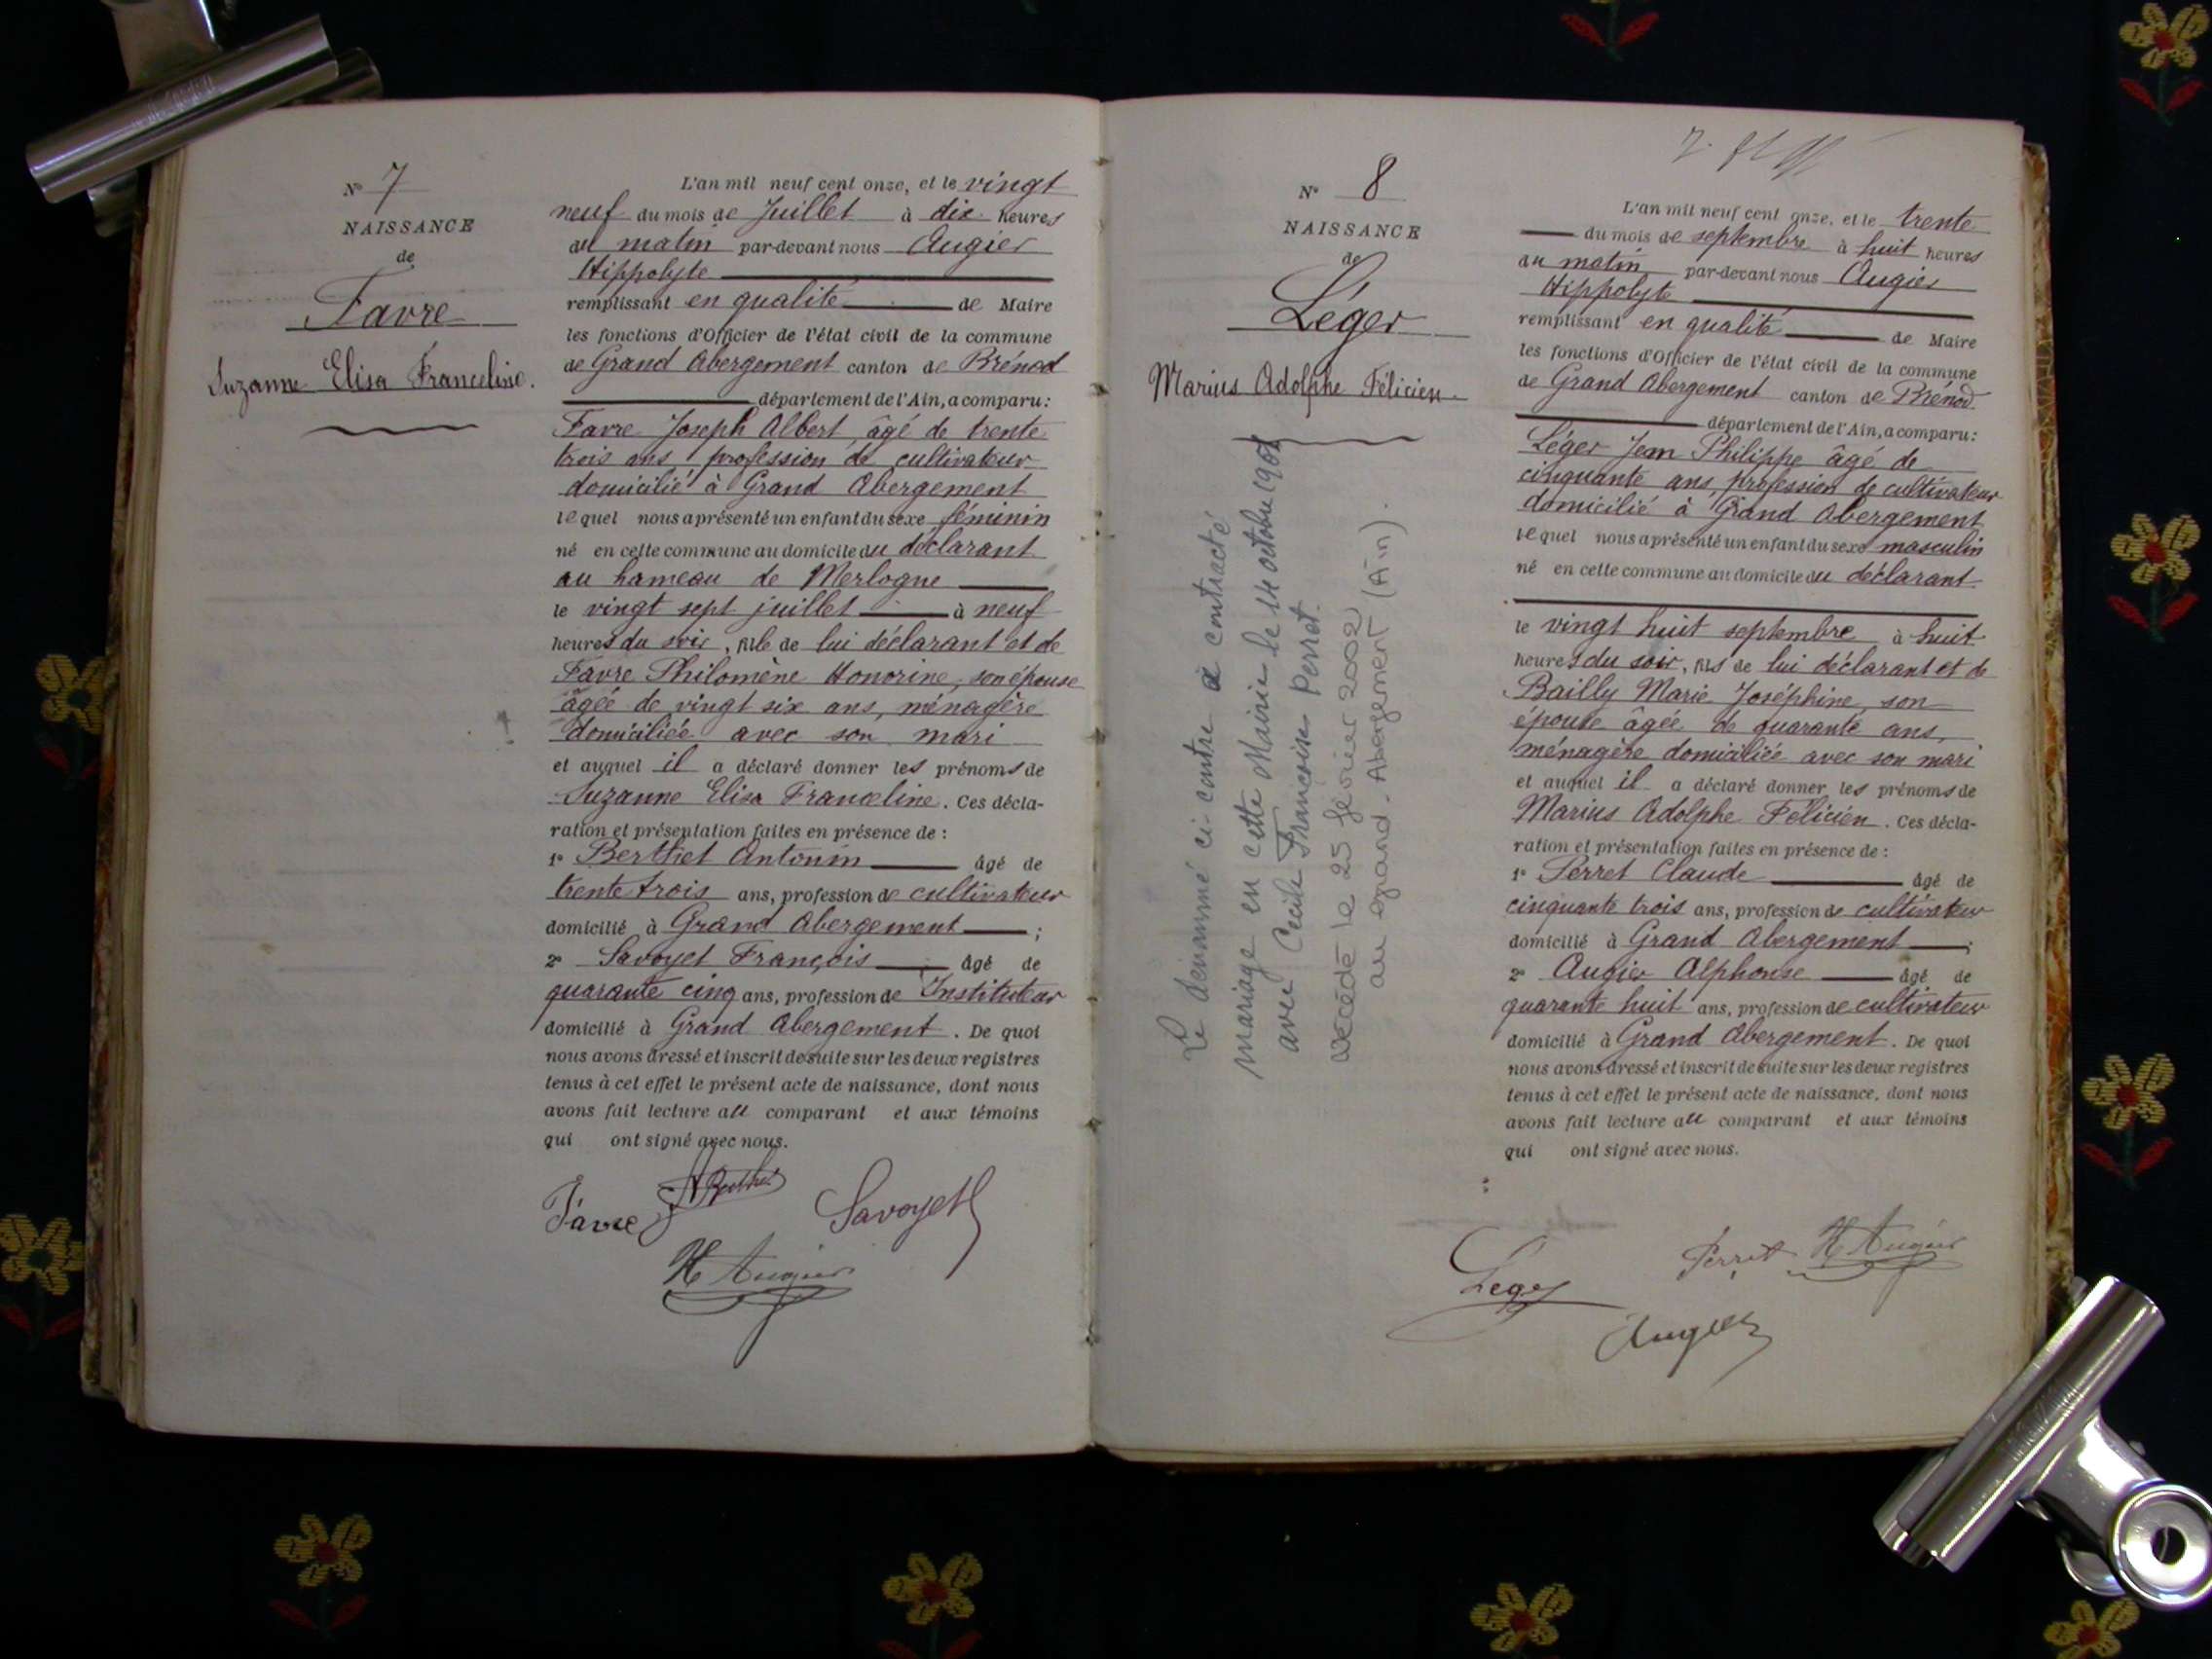 N° 7
NAISSANCE
de
Favre
Suzanne Elisa Franceline.
L'an mil neuf cent onze, et le vingt
neuf du mois de Juillet à dix heures
du matin par-devant nous Augier
Hippolyte
remplissant en qualité de Maire
les fonctions d'Officier de l'état civil de la commune
de Grand Abergement canton de Brénod
département de l'Ain, a comparu :
Favre Joseph Albert âgé de trente
trois ans profession de cultivateur
domicilié à Grand Abergement
lequel nous a présenté un enfant du sexe féminin
né en cette commune au domicile du déclarant
au hameau de Merlogne
le vingt sept juillet à neuf
heures du soir, fille de lui déclarant et de
Favre Philomène Honorine, son épouse
âgée de vingt six ans, ménagère
domiciliée avec son mari
et auquel il a déclaré donner les prénoms de
Suzanne Elisa Franceline. Ces décla-
ration et présentation faites en présence de :
1° Berthet Antonin âgé de
trente trois ans, profession de cultivateur
domicilié à Grand Abergement ;
2° Savoyet François âgé de
quarante cinq ans, profession de Instituteur
domicilié à Grand Abergement. De quoi
nous avons dressé et inscrit de suite sur les deux registres
tenus à cet effet le présent acte de naissance, dont nous
avons fait lecture au comparant et aux témoins
qui ont signé avec nous.
Favre A Berthet Savoyet
H Augier
N° 8
NAISSANCE
de
Léger
Marius Adolphe Félicien.
Le dénommé ci-contre a contracté
mariage en cette Mairie le 14 octobre
avec Cécile Françoise Perret.
Décédé le 25 février 2002
au Grand-Abergement (Ain).
L'an mil neuf cent onze, et le trente
du mois de septembre à huit heures
du matin par-devant nous Augier
Hippolyte
remplissant en qualité de Maire
les fonctions d'Officier de l'état civil de la commune
de Grand Abergement canton de Brénod.
département de l'Ain, a comparu :
Léger Jean Philippe âgé de
cinquante ans, profession de cultivateur
domicilié à Grand Abergement
lequel nous a présenté un enfant du sexe masculin
né en cette commune au domicile du déclarant
le vingt huit septembre à huit
heures du soir, fils de lui déclarant et de
Bailly Marie Joséphine, son
épouse âgée de quarante ans,
ménagère domiciliée avec son mari
et auquel il a déclaré donner les prénoms de
Marius Adolphe Félicien. Ces décla-
ration et présentation faites en présence de :
1° Perret Claude âgé de
cinquante trois ans, profession de cultivateur
domicilié à Grand Abergement ;
2° Augier Alphonse âgé de
quarante huit ans, profession de cultivateur
domicilié à Grand Abergement. De quoi
nous avons dressé et inscrit de suite sur les deux registres
tenus à cet effet le présent acte de naissance, dont nous
avons fait lecture au comparant et aux témoins
qui ont signé avec nous.
Léger Perret H Augier
Augier